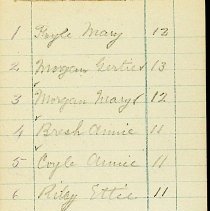 1 Coyle Mary 12
2 Morgan Gertie 13
3 Morgan Mary 12
4 Bresh Annie 11
5 Coyle Annie 11
6 Riley Ettie 11